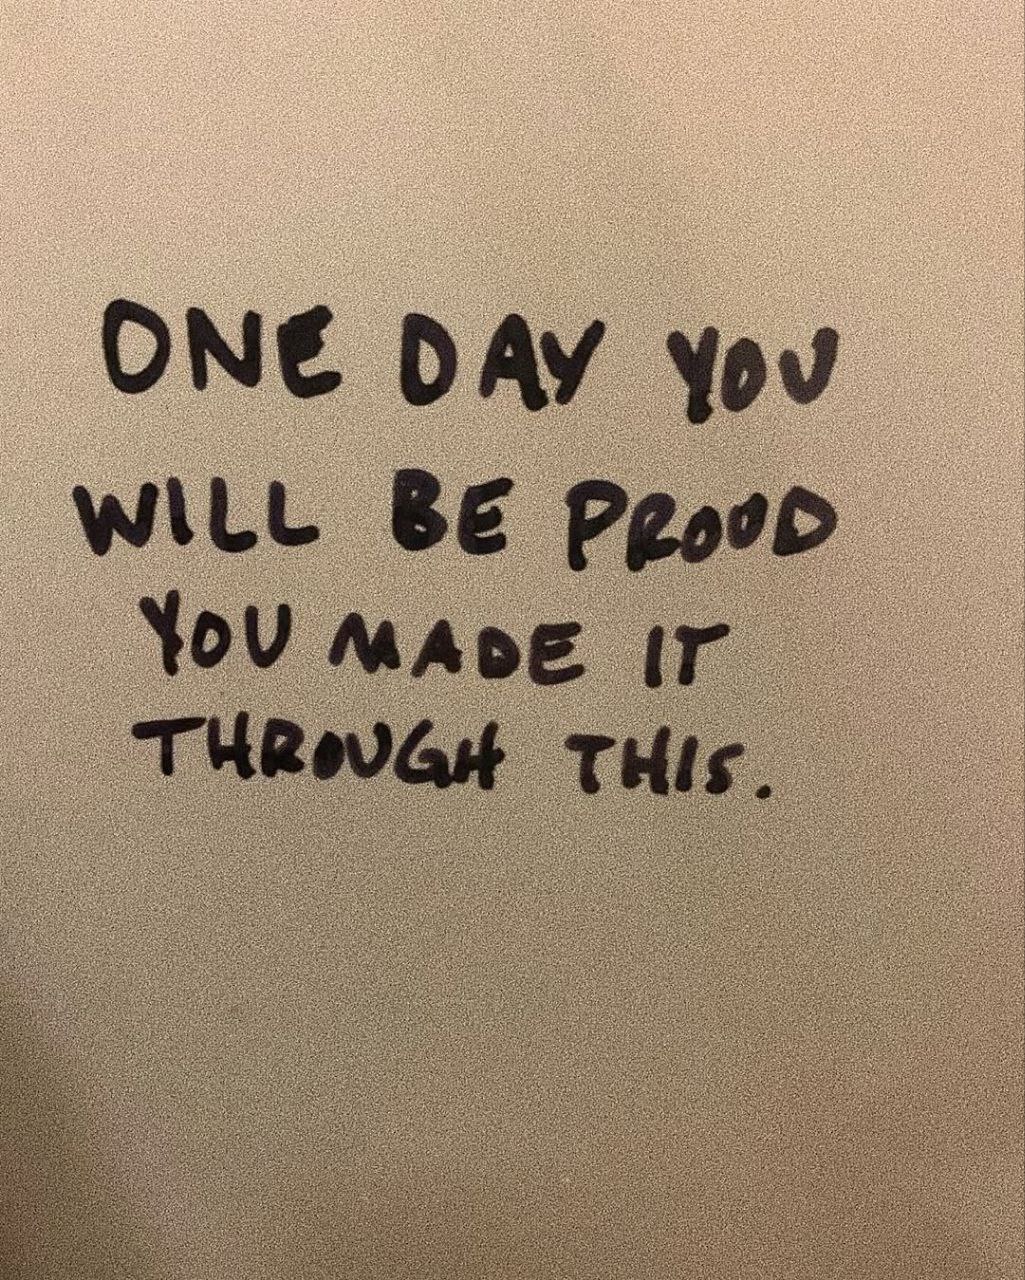 ONE DAY YOU
WILL BE PROUD
YOU MADE IT
THROUGH THIS.